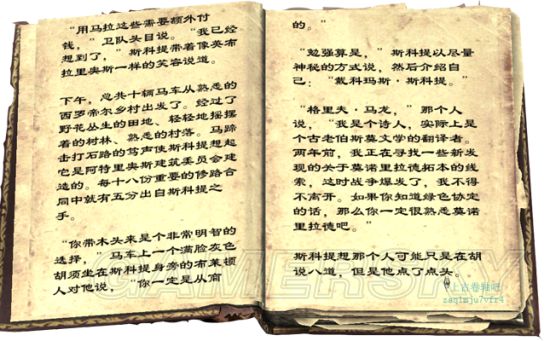 “用马拉这些需要额外付
钱，”卫队头目说。“我已经
想到了，”斯科提带着像英布
拉里奥斯一样的笑容说道。
下午，总共十辆马车从熟悉的
西罗帝尔乡村出发了。经过了
野花丛生的田地、轻轻地摇摆
着的树林、熟悉的村落。马蹄
击打石路的笃声使斯科提想起
它是阿特里奥斯建筑委员会建
造的。每十八份重要的修路合
同中就有五分出自斯科提之
手。
“你带木头来是个非常明智的
选择，”马车上一个满脸灰色
胡须坐在斯科提身旁的布莱顿
人对他说，“你一定是从商
的。”
“勉强算是，”斯科提以尽量
神秘的方式说，然后介绍自
己：“戴科玛斯·斯科提。”
“格里夫·马龙，”那个人
说，“我是个诗人，实际上是
个古老伯斯莫文学的翻译者。
两年前，我正在寻找一些新发
现的关于莫诺里拉德拓本的线
索，这时战争爆发了，我不得
不离开。如果你知道绿色协定
的话，那么你一定很熟悉莫诺
里拉德吧。”
斯科提想那个人可能只是在胡
说八道，但是他点了点头。
GAMERSKY
上古卷轴吧
zaq1mju7vfr4